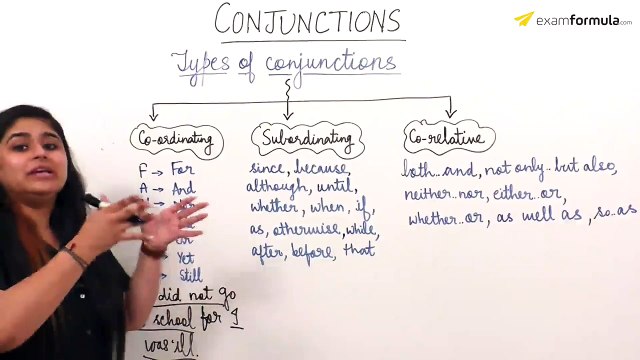 CONJUNCTIONS
examformula.com
Types of conjunctions
Co-ordinating
F → For
A → And
Yet
→ Still
did not go
school for I
was ill.
Subordinating
since, because,
although, until,
whether, when, if,
as, otherwise, while,
after, before, that
Co-relative
both..and, not only..but also,
neither..nor, either..or,
whether..or, as well as, so..as